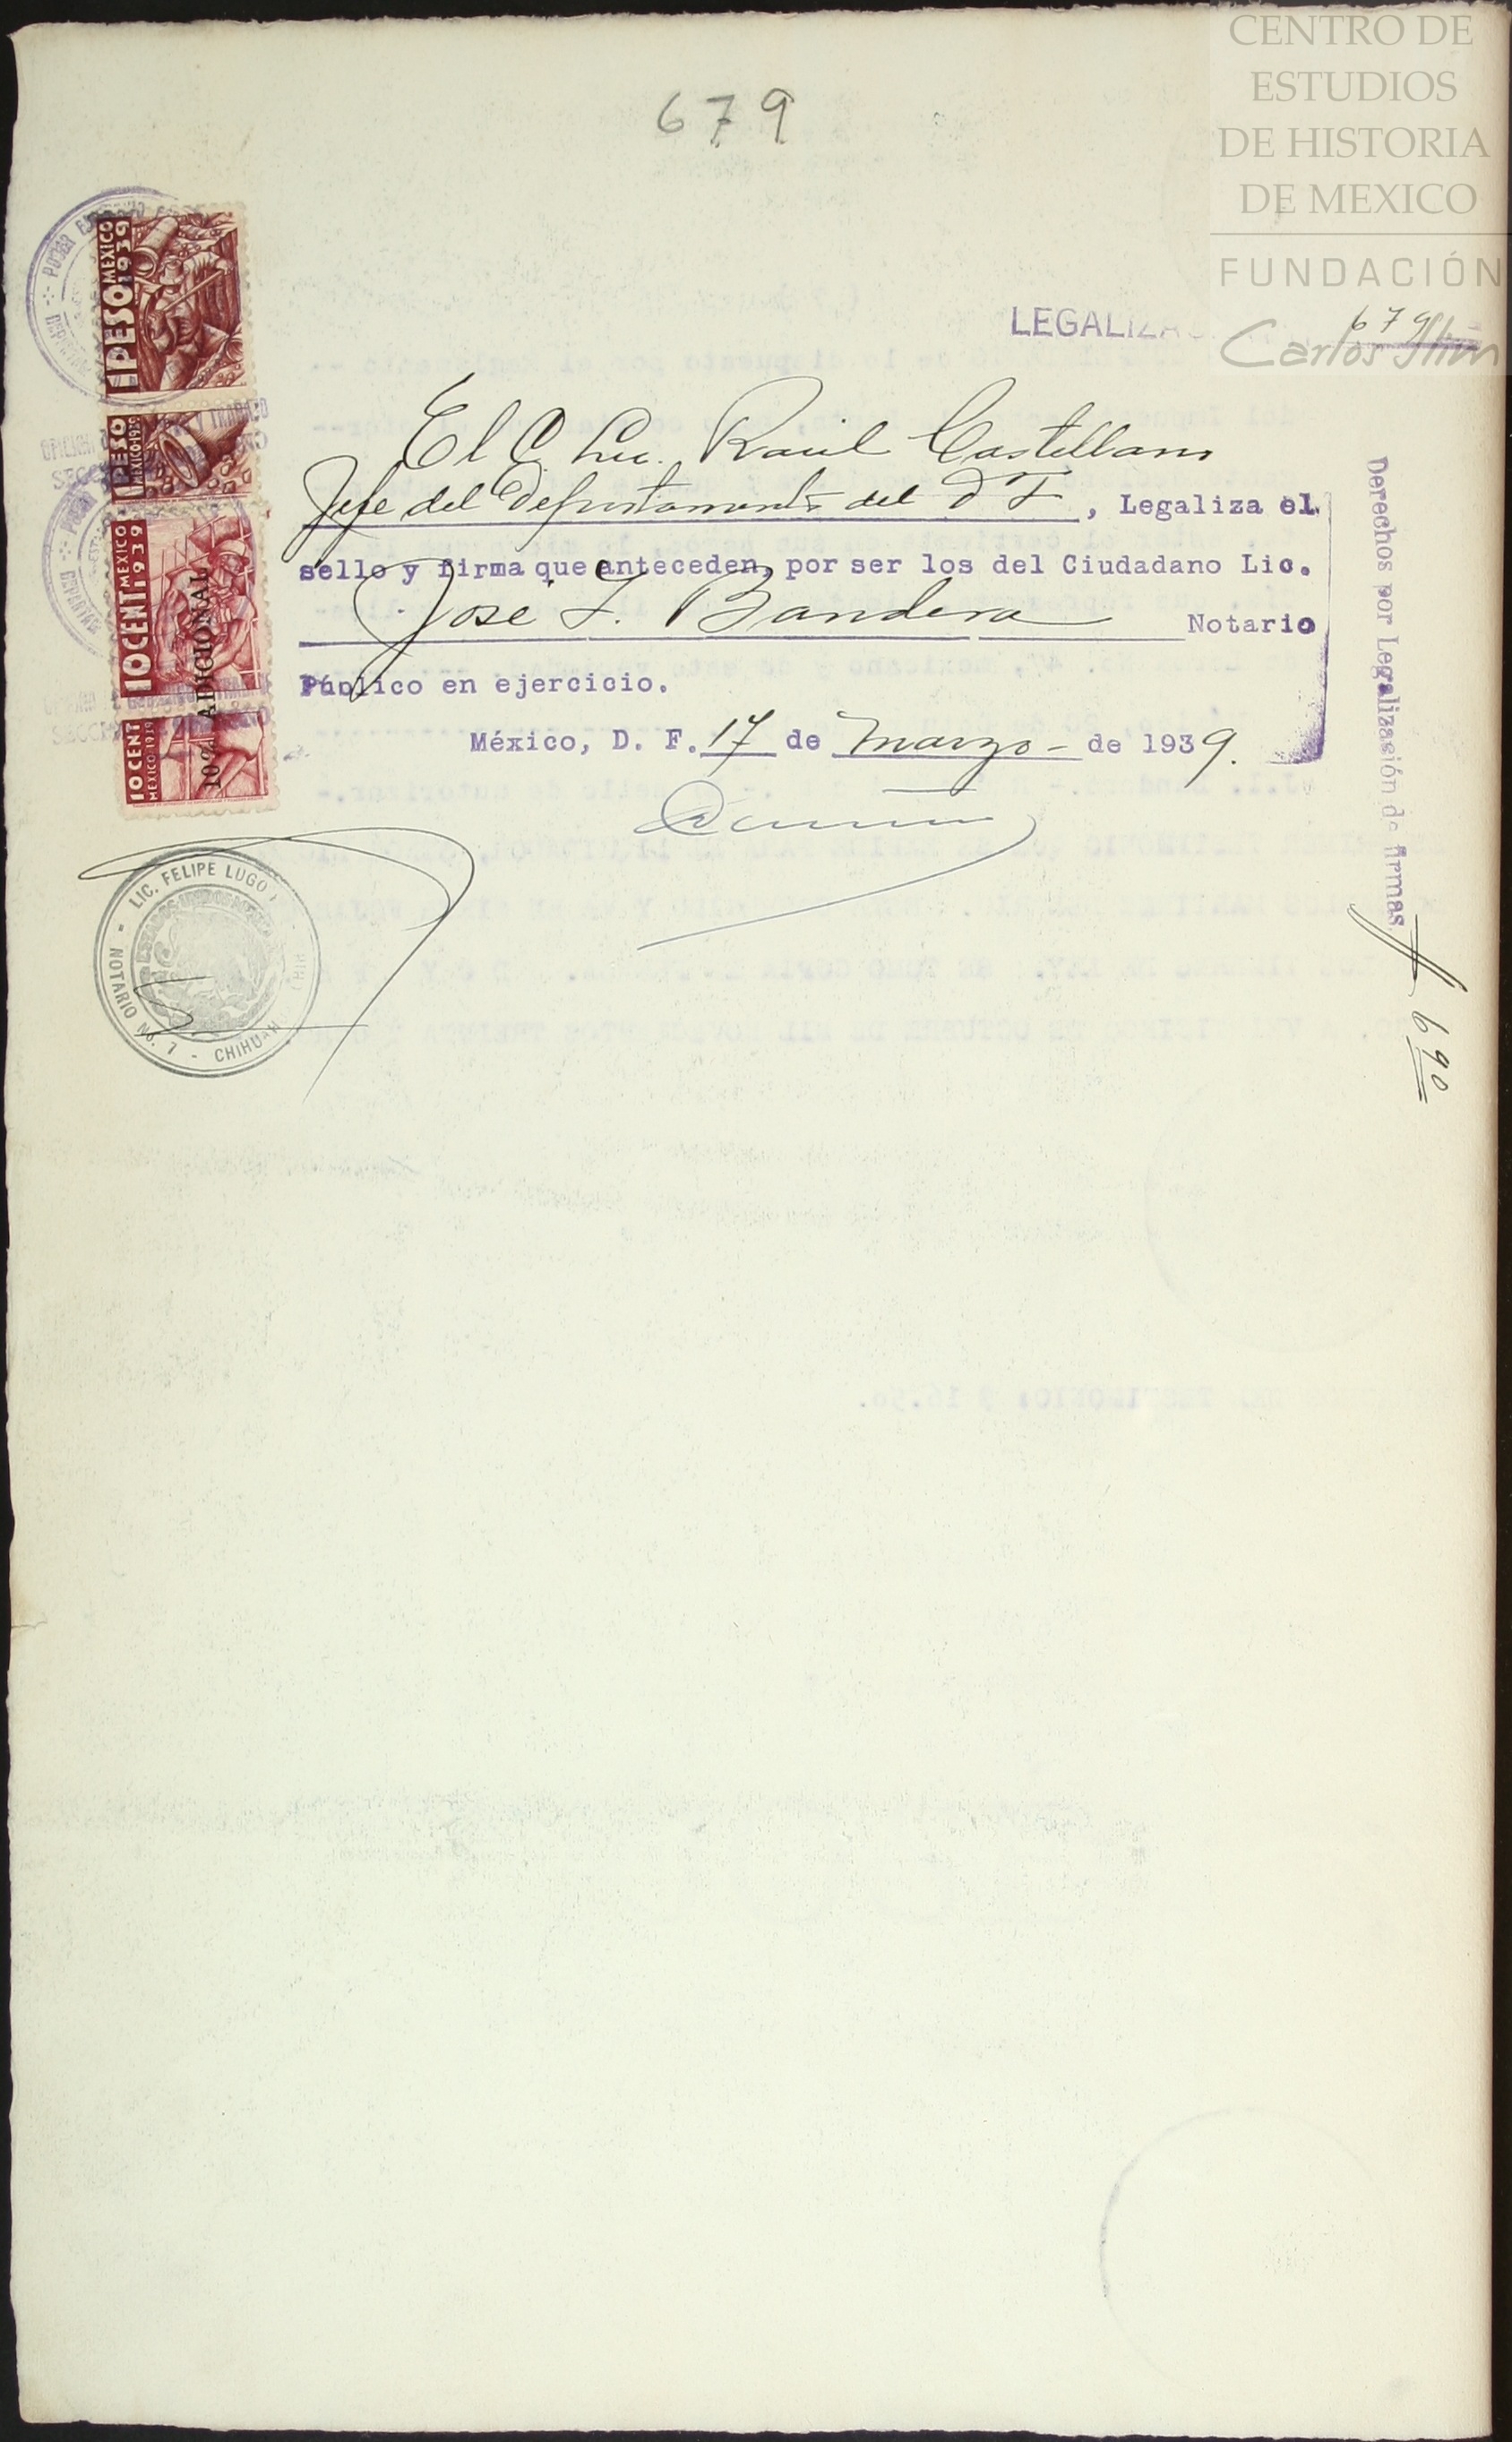 679
CENTRO DE
ESTUDIOS
DE HISTORIA
DE MEXICO
FUNDACIÓN
Carlos Slim
LEGALIZA
679
El C. Lic. Raúl Castellano
Jefe del Departamento del D F, Legaliza el
sello y firma que anteceden, por ser los del Ciudadano Lic.
José I. Bandera Notario
Público en ejercicio.
México, D. F. 17 de marzo - de 1939.
Derechos por Legalizasión de firmas
$ 6 90
1 PESO MEXICO 1939
1 PESO MEXICO-1939
10 CENT MEXICO 1939
10 CENT MEXICO-1939
10% ADICIONAL
LIC. FELIPE LUGO
NOTARIO No. 7 - CHIHUAH